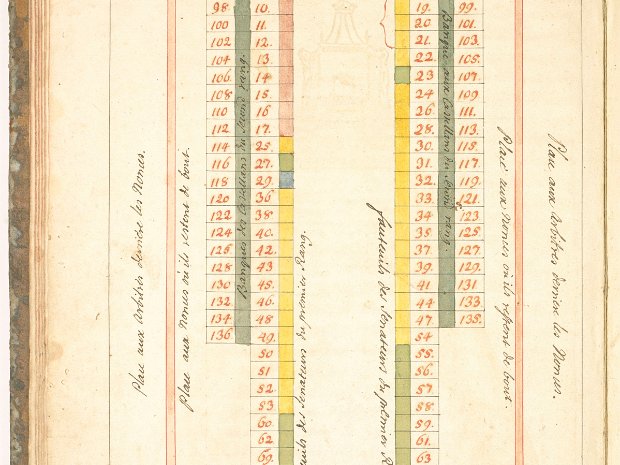 Place aux Arbitres derriere les Nonces.
Place aux nonces où ils restent de bout.
98
100
102
104
106.
108
110
112
114
116
118
120
122
124
126
128
130
132
134
136.
Banques des Castellans du second rang.
10.
11.
12.
13
14
15.
16
17.
25.
27.
29.
36
38.
40.
42.
43
45.
46.
48
49.
50
51
52.
53
60.
62
69.
uils des Senateurs du premier Rang.
fauteuils des Senateurs du premier Ra
19.
20
21.
22.
23
24
26
28.
30
31.
32.
33.
34
35
37
39.
41
44
47.
54
55.
56.
57
58.
59.
61.
63
Banque aux Castellans du second rang.
99.
101
103.
105.
107.
109.
111.
113.
115.
117.
119.
121.
123.
125.
127.
129.
131
133
135.
Place aux nonces ou ils restent de bout.
Place aux Arbitres derriere les Nonces.